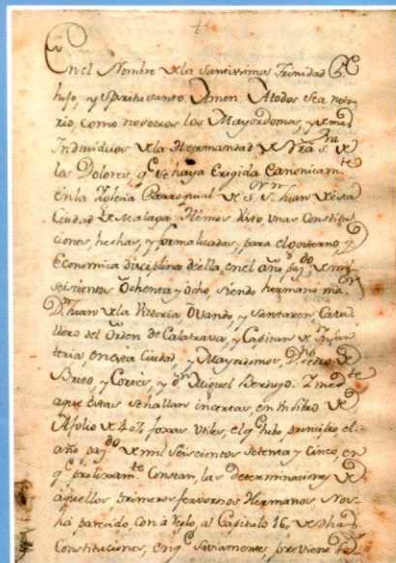 En el Nombre de la Santissima Trinidad Pe
hijo, y Spiritu santo. Amen. Atodos sea noto
rio, como nosotros los Mayordomos, y demas
Individuos de la Hermandad de Nra. Sra. de
los Dolores q.e se haya Erigida Canonicam.te
en la Iglesia Parroquial de S.r S. Juan de esta
Ciudad de Malaga Hemos Visto unas Constitu
ciones, hechas, y formalizadas, para el govierno, y
Economica disciplina de ella, en el año pas.do de mil
seiscientos Ochenta y ocho, siendo hermano ma.or
D.n Juan de la Vitoria Ovando, y Santaren Cava
llero del Orden de Calatrava, y Capitan de Infan
teria, en esta Ciudad, y Mayordomos, D.n Pedro de
Brito, y Cortes, y D.n Miguel Berdugo. I med.te
aque estas se hallan incertas, en un libro de
Afolio de 404 foxas Utiles, el q.e tubo principio el
año pas.do de mil Seiscientos setenta y Cinco, en
q.e prolixam.te Constan, las determinaciones de
aquellos primeros fervorosos Hermanos Nos
ha parecido, con arreglo, al Capitulo 16, de dhas
Constituciones, en q.e Saviamente, previene